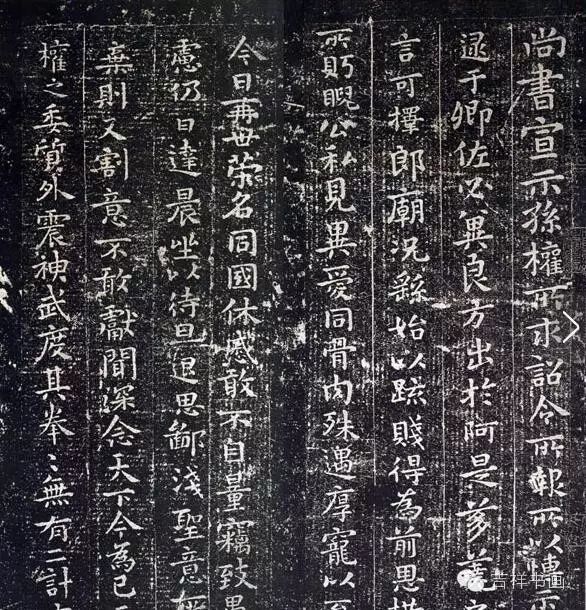 尚書宣示孫權所求詔令所報所以博
逮于卿佐必冀良方出於阿是芻蕘
言可擇郎廟況繇始以疏賤得為前恩橫
所眄睨公私見異愛同骨肉殊遇厚寵以至
今日再世榮名同國休慼敢不自量竊致愚
慮仍日達晨坐以待旦退思鄙淺聖意
棄則又割意不敢獻聞深念天下今為已
權之委質外震神武度其拳〻無有二計
吉祥书画